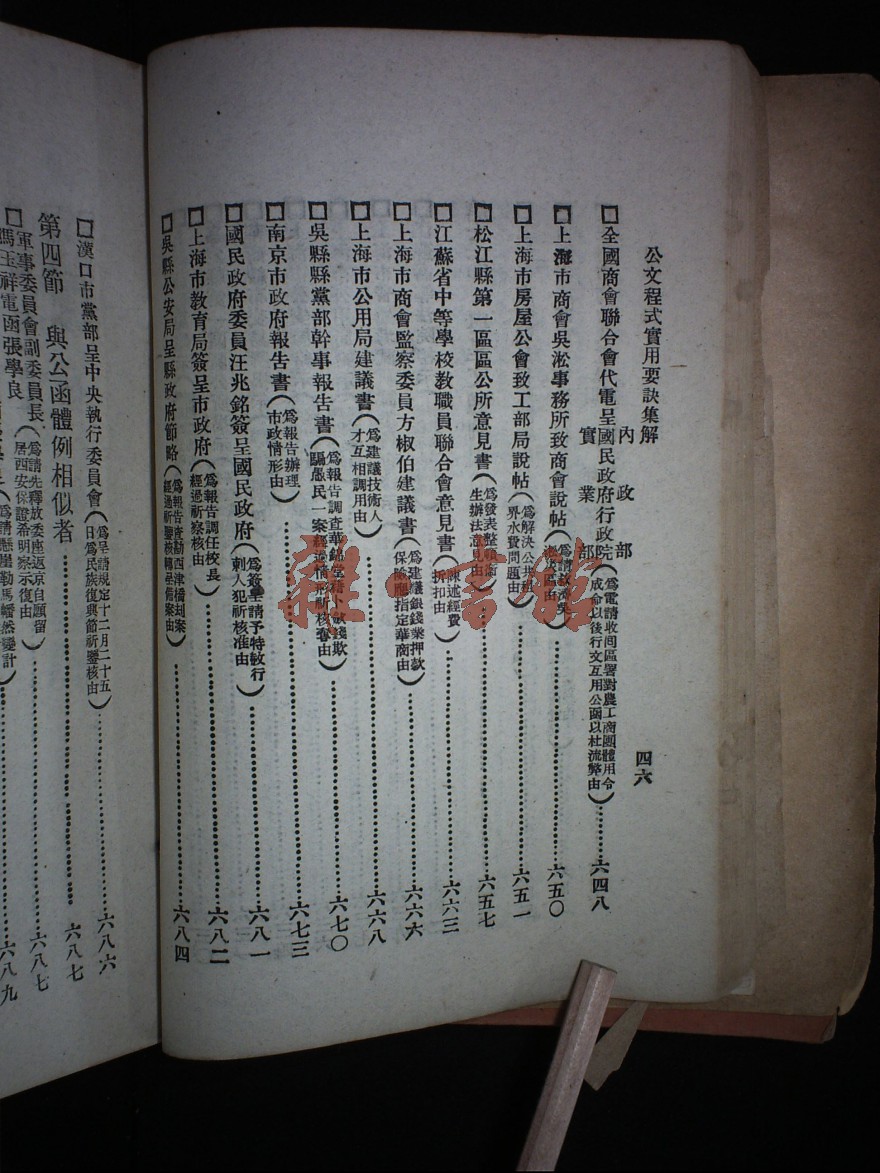 公文程式實用要訣集解
四六
□全國商會聯合會代電呈國民政府行政院內政部實業部(爲電請收回區署對農工商團體用令成命以後行文互用公函以杜流弊由)……六四八
□上海市商會吳淞事務所致商會說帖……六五〇
□上海市房屋公會致工部局說帖(爲解決公共租界水費問題由)……六五一
□松江縣第一區區公所意見書……六五七
□江蘇省中等學校教職員聯合會意見書(陳述經費折扣由)……六六三
□上海市商會監察委員方椒伯建議書(爲建議銀錢業押款保險應指定華商由)……六六六
□上海市公用局建議書(爲建議技術人才互相調用由)……六六八
□吳縣縣黨部幹事報告書(爲報告調查華錦堂藉卜歛錢欺騙愚民一案經過情形祈核奪由)……六七〇
□南京市政府報告書(爲報告辦理市政情形由)……六七三
□國民政府委員汪兆銘簽呈國民政府(爲簽呈請予特赦行刺人犯祈核准由)……六八一
□上海市教育局簽呈市政府(爲報告調任校長經過祈察核由)……六八二
□吳縣公安局呈縣政府節略……六八四
□漢口市黨部呈中央執行委員會(爲呈請規定十二月二十五日爲民族復興節祈鑒核由)……六八六
第四節　與公函體例相似者……六八七
□軍事委員會副委員長馮玉祥電函張學良(爲請先釋放委座返京自願留居西安保證希明察示復由)……六八七
六八九
雜·言館